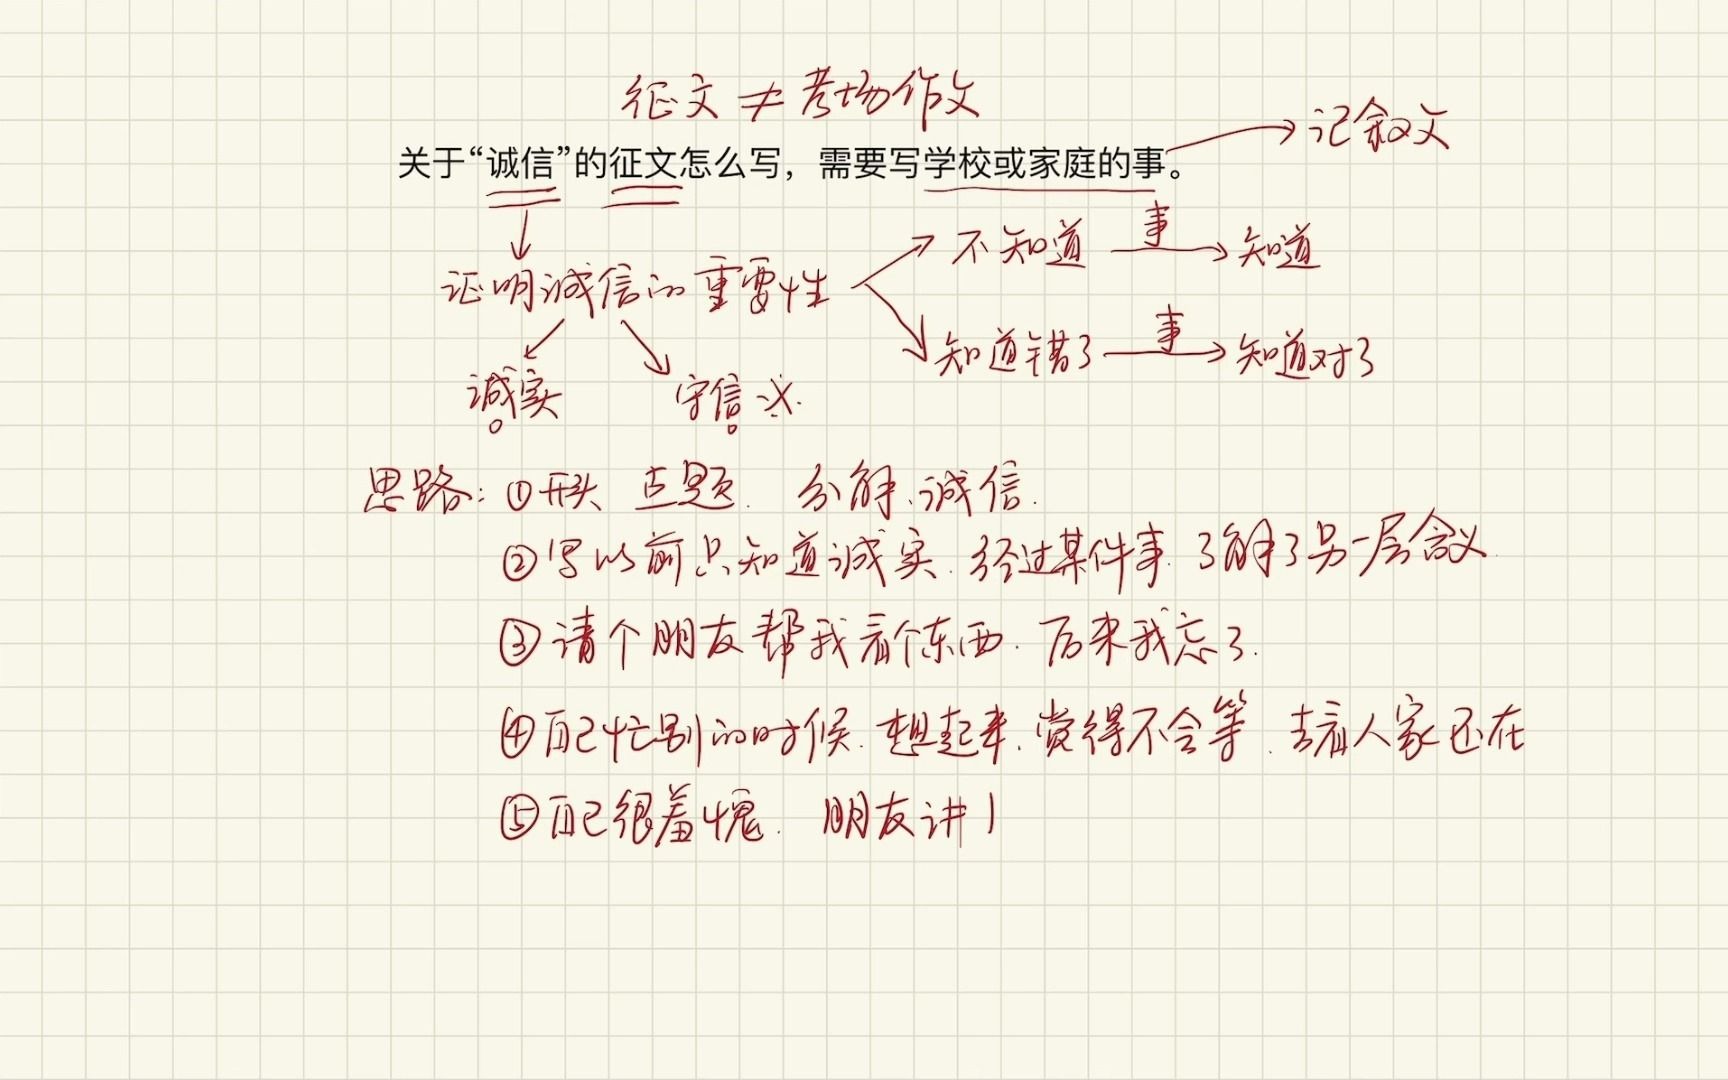 征文≠考场作文
关于“诚信”的征文怎么写，需要写学校或家庭的事。
记叙文
证明诚信的重要性
不知道 事 知道
知道错了 事 知道对了
诚实 守信
思路：①开头 点题. 分解.诚信.
②写以前只知道诚实. 经过某件事. 了解了另一层含义.
③请个朋友帮我看个东西. 后来我忘了.
④自己忙别的时候. 想起来. 觉得不会等. 去看人家还在
⑤自己很羞愧. 朋友讲